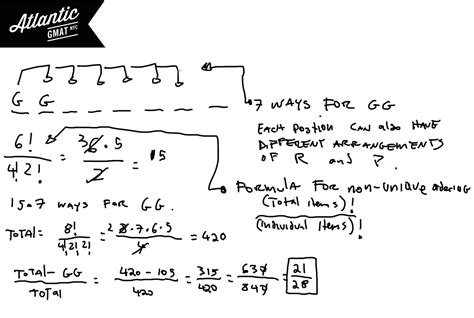 Atlantic
GMAT NYC
G G _ _ _ _ _ _
7 WAYS FOR GG
EACH POSITION CAN also HAVE
DIFFERENT ARRANGEMENTS
OF R and P.
6!/4!2! = 36·5/2 = 15
FORMULA FOR non-UNIQUE ordering
(Total items)!
(Individual Items)!
15·7 WAYS FOR GG.
TOTAL= 8!/4!2!2! = 28·7·6·5/4 = 420
TOTAL-GG/TOTAL = 420-105/420 = 315/420 = 630/840 = 21/28